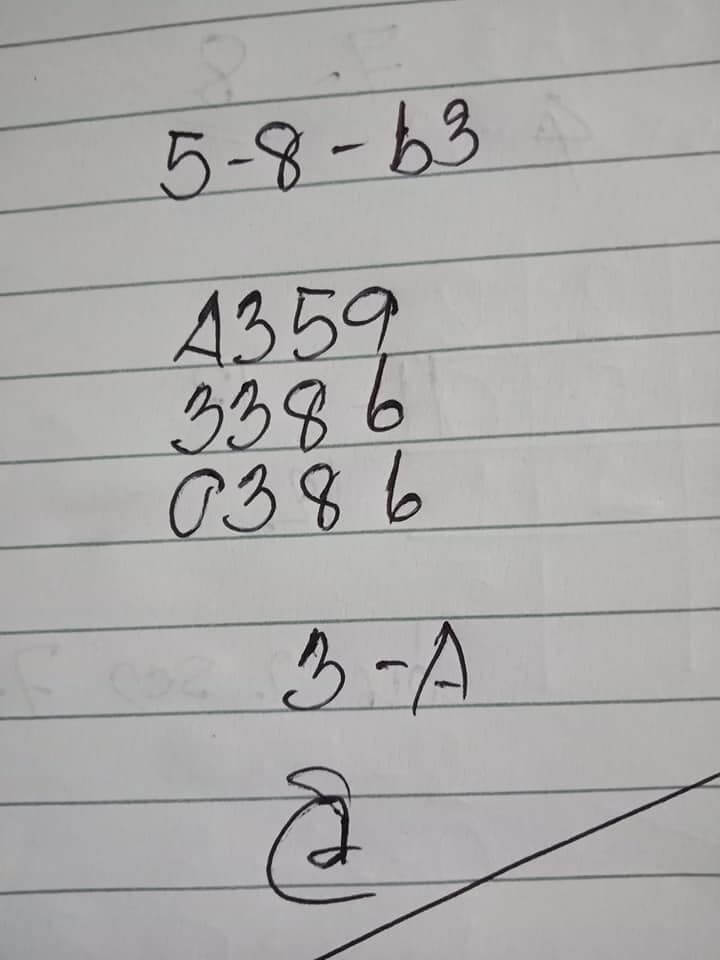 5-8-63
A359
3386
0386
3-A